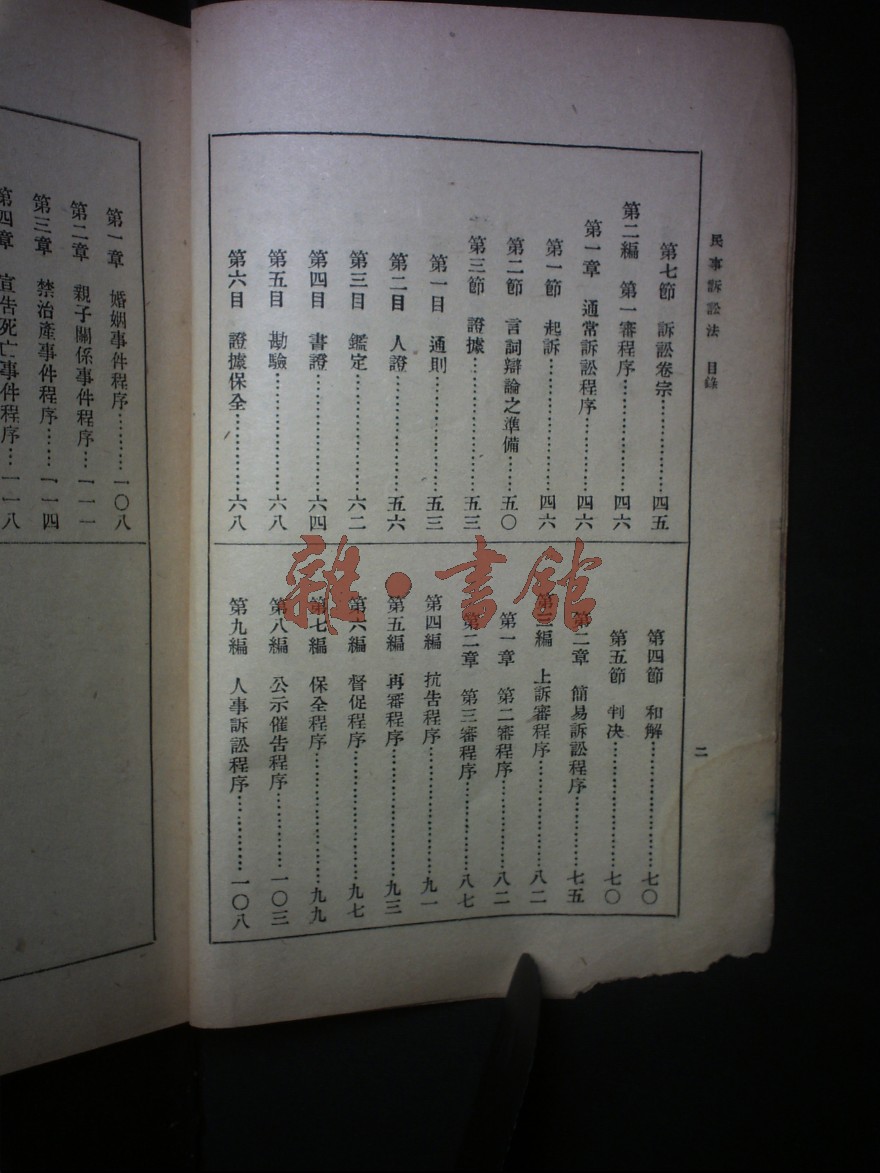 民事訴訟法 目錄
二
第七節 訴訟卷宗………………四五
第二編 第一審程序………………四六
第一章 通常訴訟程序………………四六
第一節 起訴………………四六
第二節 言詞辯論之準備………………五〇
第三節 證據………………五三
第一目 通則………………五三
第二目 人證………………五六
第三目 鑑定………………六二
第四目 書證………………六四
第五目 勘驗………………六八
第六目 證據保全………………六八
第四節 和解………………七〇
第五節 判決………………七〇
第二章 簡易訴訟程序………………七五
第三編 上訴審程序………………八二
第一章 第二審程序………………八二
第二章 第三審程序………………八七
第四編 抗告程序………………九一
第五編 再審程序………………九三
第六編 督促程序………………九七
第七編 保全程序………………九九
第八編 公示催告程序………………一〇三
第九編 人事訴訟程序………………一〇八
第一章 婚姻事件程序………一〇八
第二章 親子關係事件程序…一一一
第三章 禁治產事件程序……一一四
第四章 宣告死亡事件程序…一一八
雜·書館